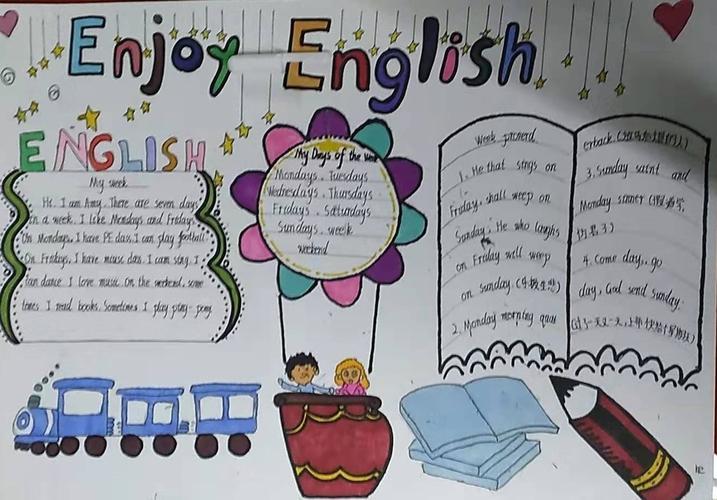 Enjoy English
ENGLISH
My week
Hi. I am Amy. There are seven days
in a week. I like Mondays and Fridays.
On Mondays, I have PE class. I can play football.
On Fridays, I have music class. I can sing. I
can dance. I love music. On the weekend, some
times I read books. Sometimes I play ping-pong
My Days of the week
Mondays. Tuesdays
Wednesdays. Thursdays
Fridays. Saturdays
Sundays. week
weekend
Week proverd
1. He that sings on
Friday, shall weep on
Sunday. He who laughs
on Friday will weep
on sunday. (乐极生悲)
2. Monday morning quar
terback.
3. Sunday saint and
Monday sinner
4. Come day, go
day, God send sunday.